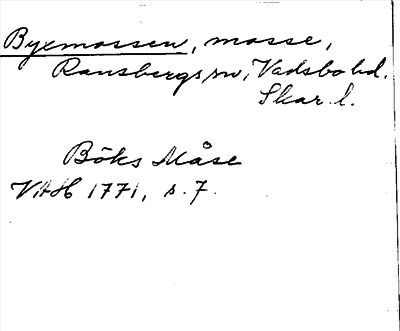 Byxmossen, mosse,
Ransbergs sn, Vadsbo hd.
Skar. l.
Böks Måse
VAH 1771, s. 7.